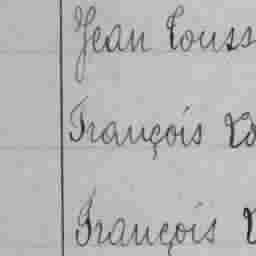 Jean Touss
François
François